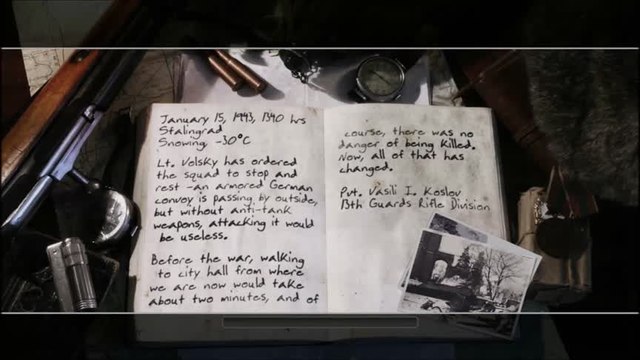 January 15, 1943, 1340 hrs
Stalingrad
Snowing, -30°C
Lt. Volsky has ordered
the squad to stop and
rest -an armored German
convoy is passing by outside,
but without anti-tank
weapons, attacking it would
be useless.
Before the war, walking
to city hall from where
we are now would take
about two minutes, and of
course, there was no
danger of being killed.
Now, all of that has
changed.
Pvt. Vasili I. Koslov
13th Guards Rifle Division